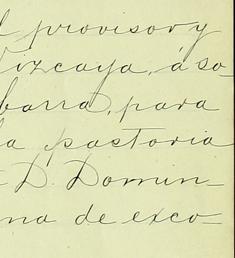 l provisor y
Vizcaya, á so
barra, para
la pastoria
D. Domin-
na de exco-